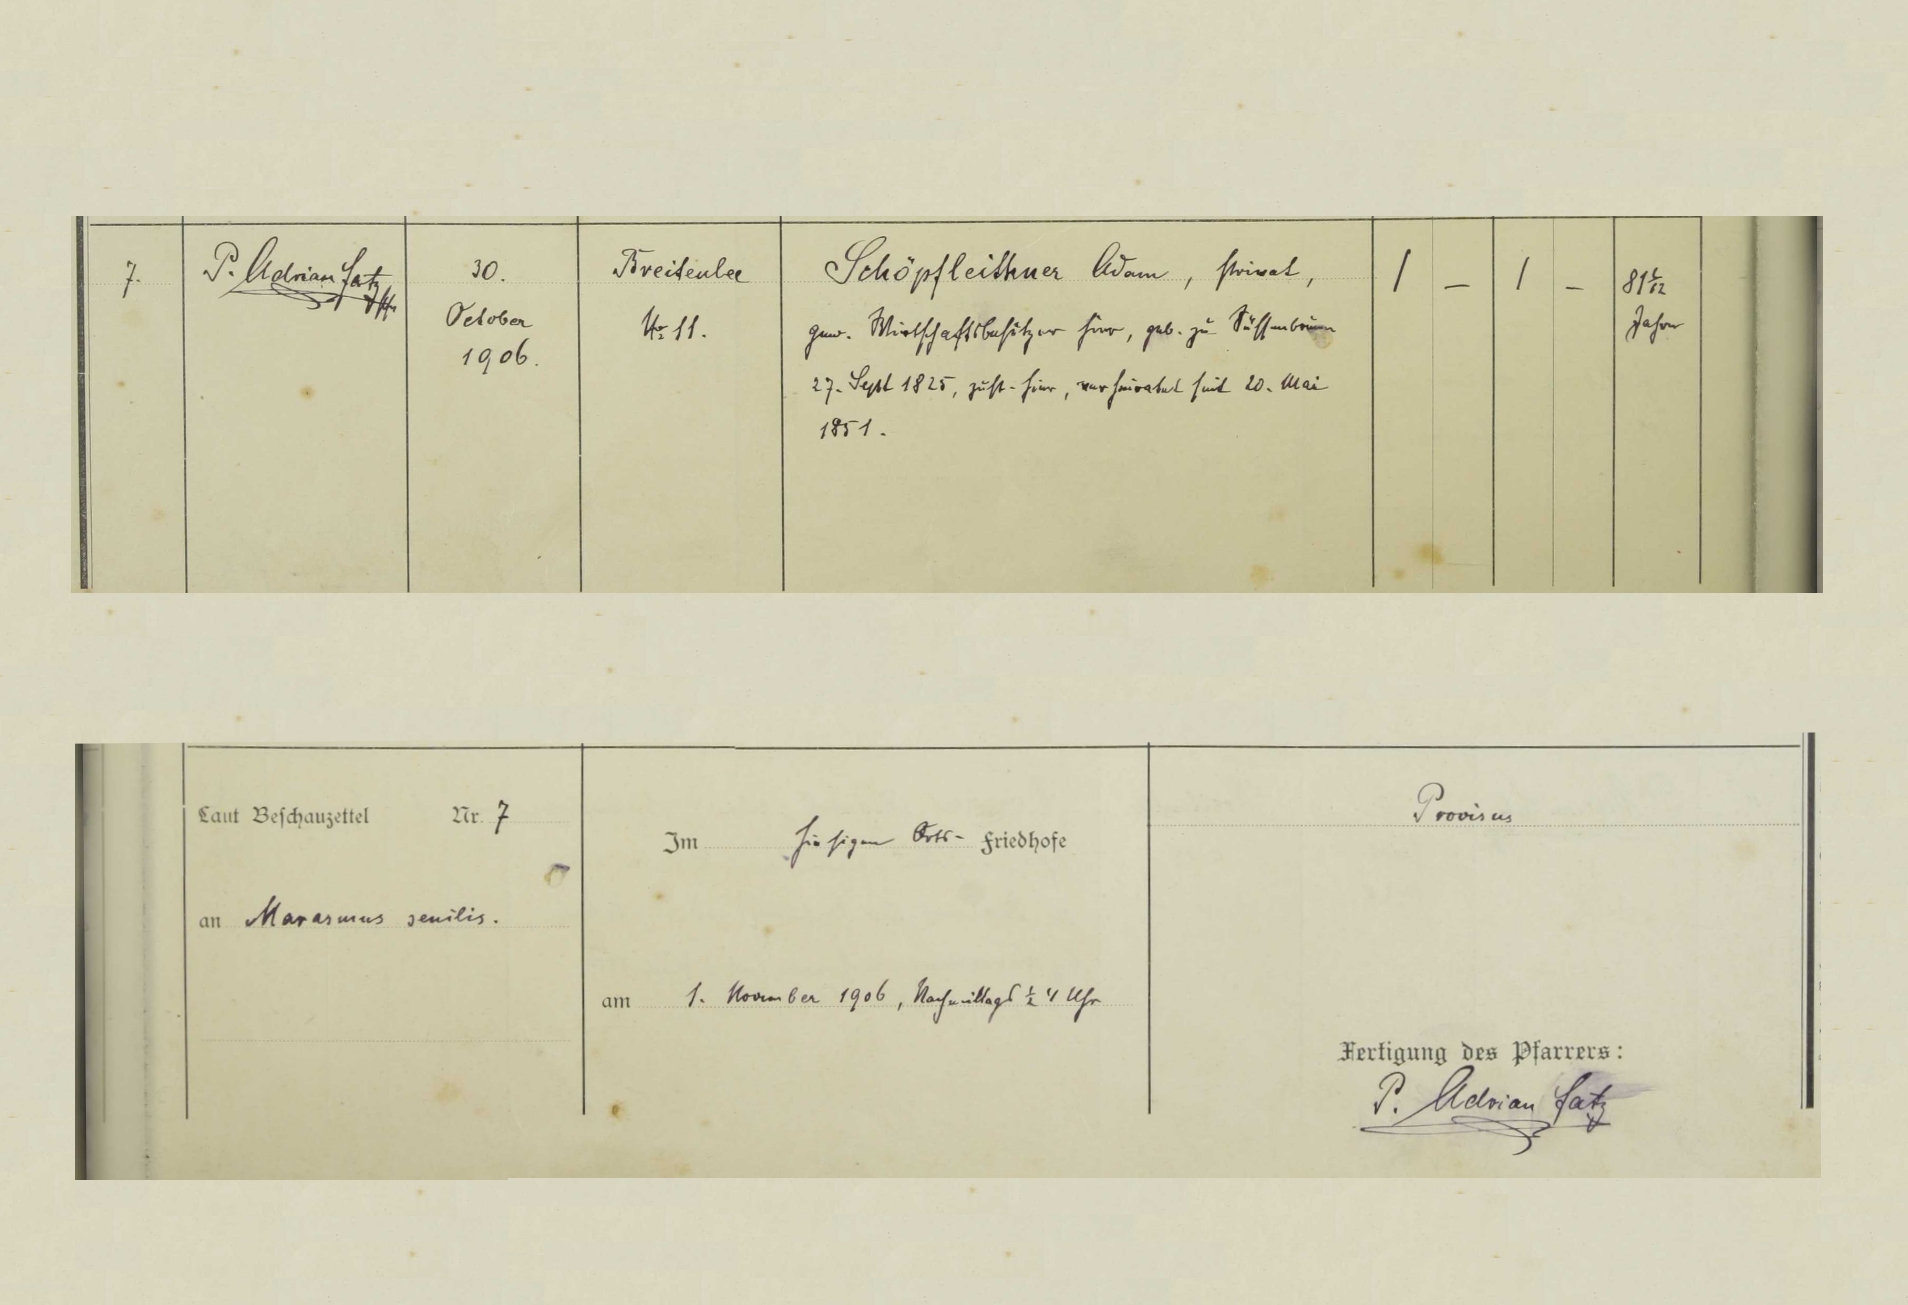 7.
P. Adrian Satz
Pfr
30.
October
1906.
Breitenlee
No 11.
Schöpfleithner Adam, Privat,
gew. Wirtschaftsbesitzer hier, geb. zu Süssenbrunn
27. Sept 1825, zust. hier, verheiratet seit 20. Mai
1851.
1 – 1 –
81 1/12
Jahre
Laut Beschauzettel Nr. 7
an Marasmus senilis.
Im hiesigen Orts- Friedhofe
am 1. November 1906, Nachmittags ½ 4 Uhr
Provisus
Fertigung des Pfarrers:
P. Adrian Satz